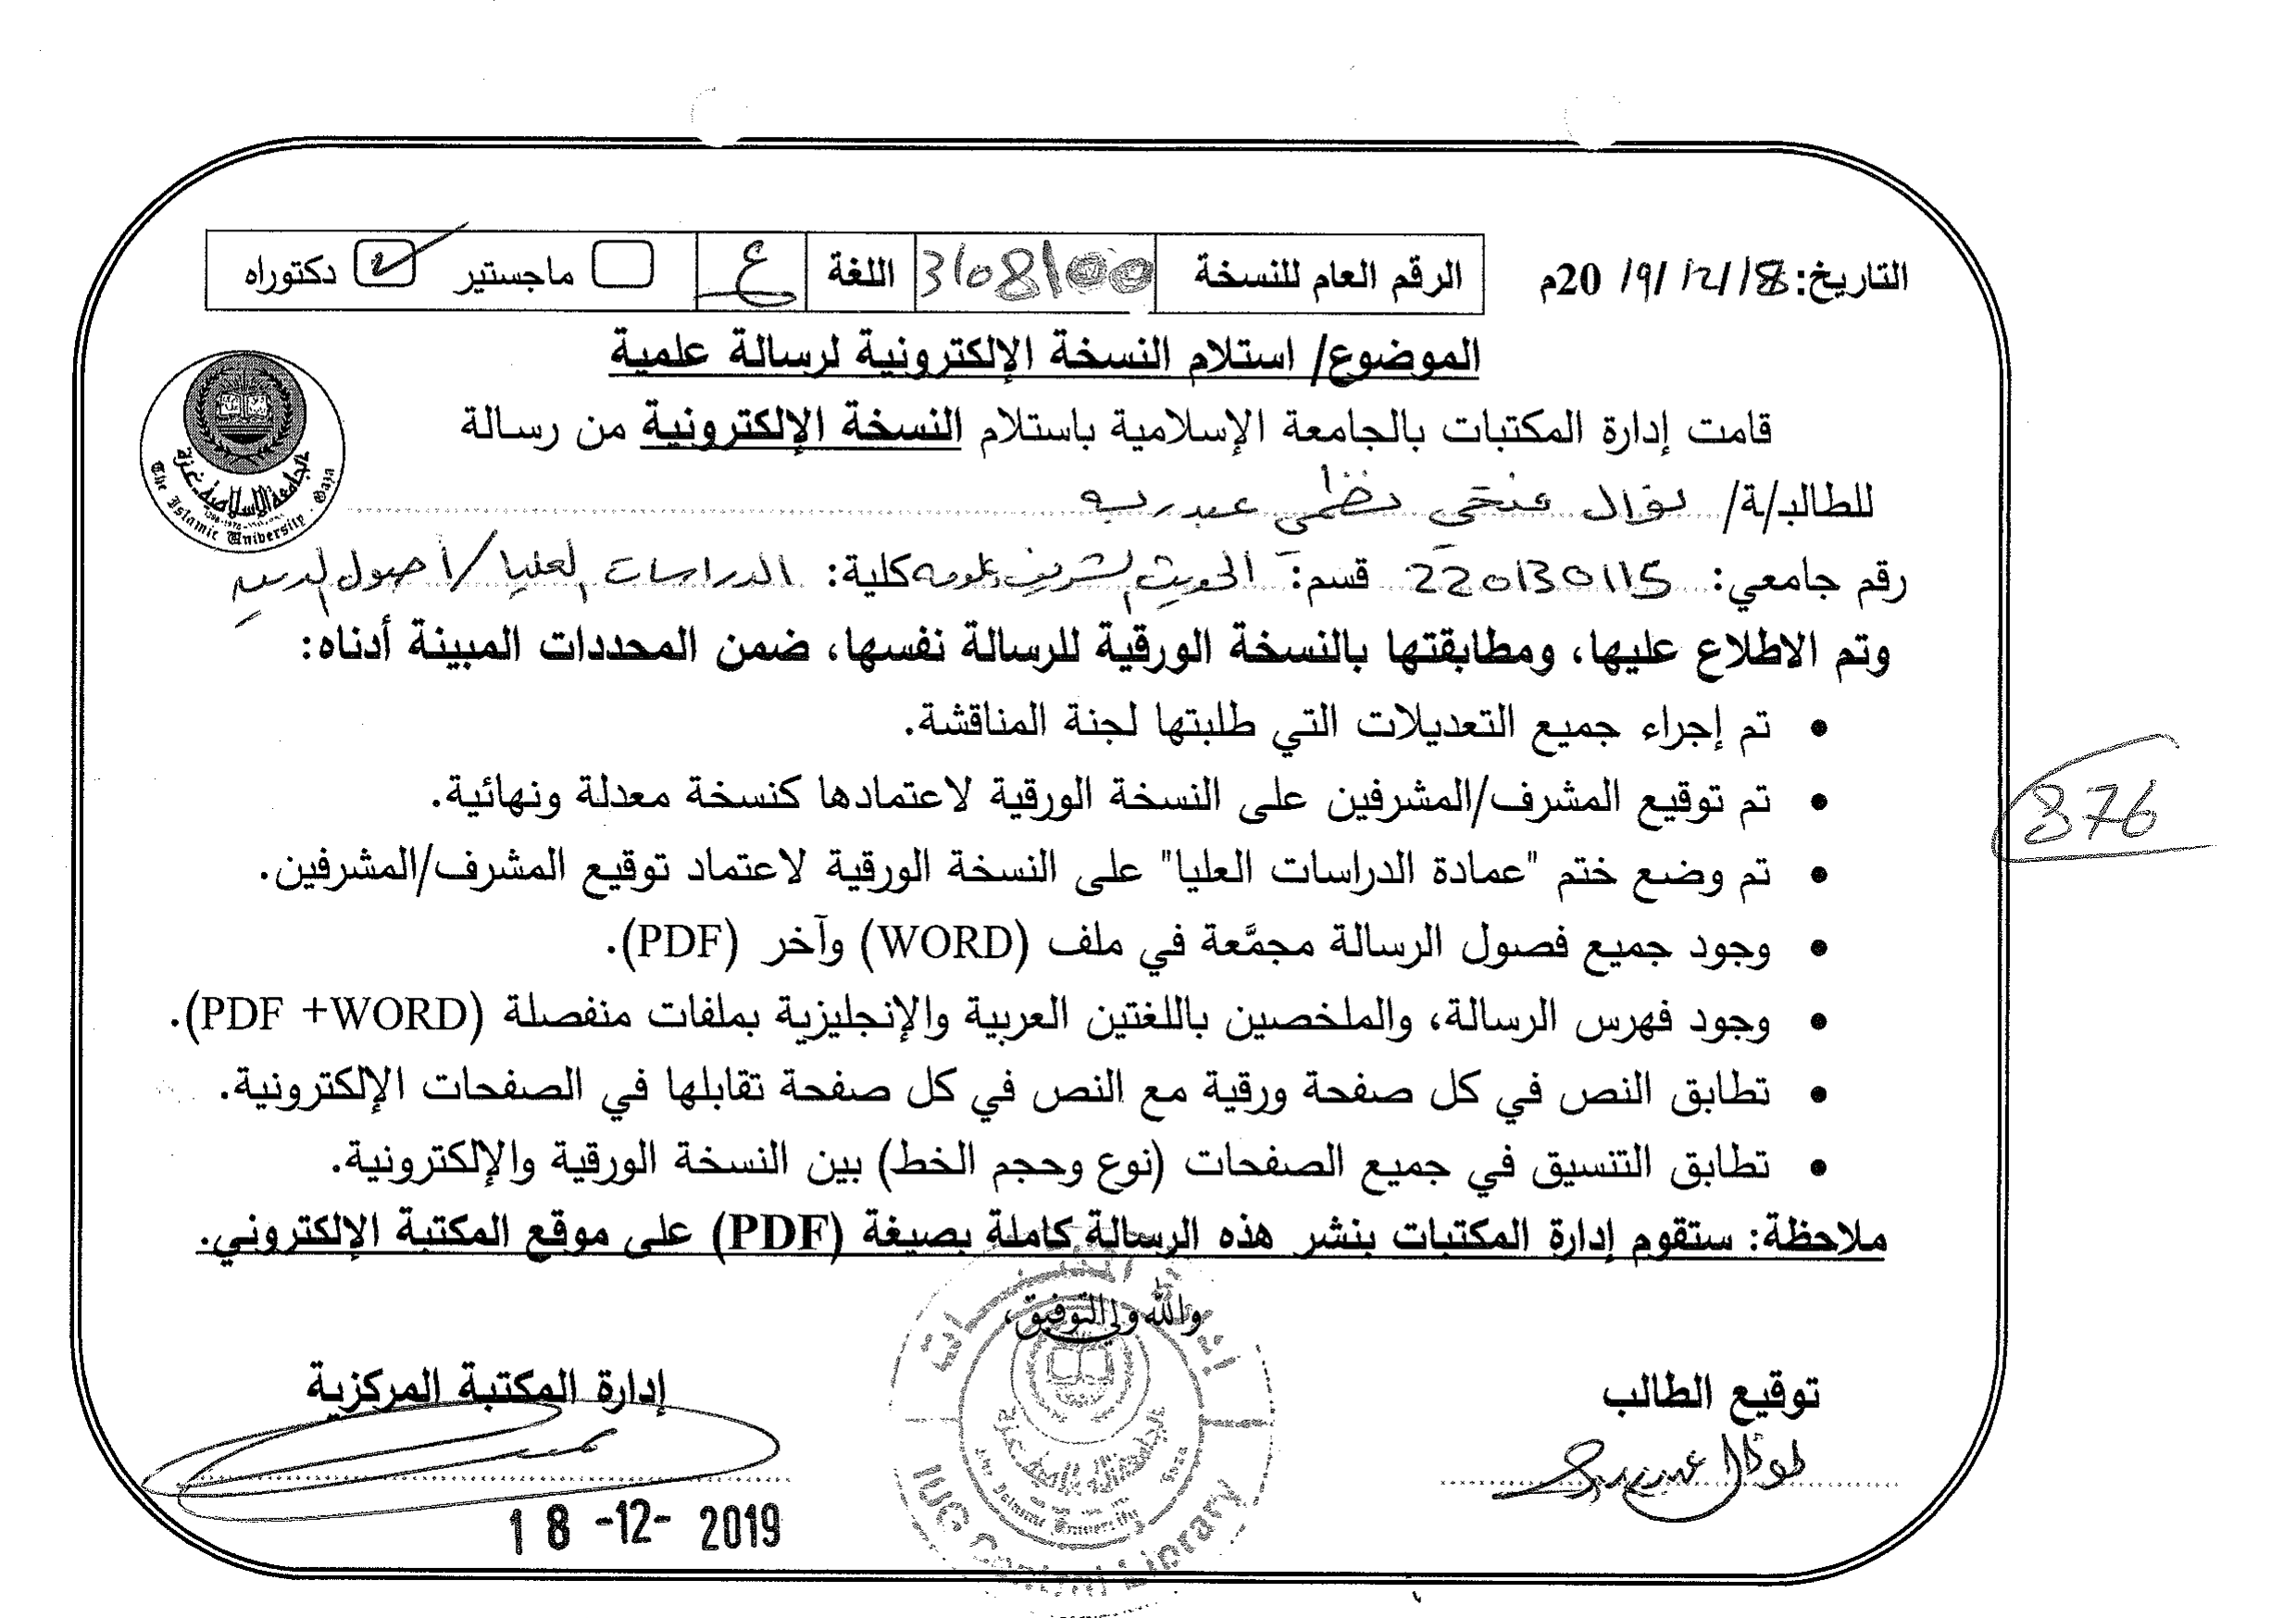 التاريخ: 18/12/2019م الرقم العام للنسخة 3108100 اللغة ع ماجستير دكتوراه
الموضوع/ استلام النسخة الإلكترونية لرسالة علمية
قامت إدارة المكتبات بالجامعة الإسلامية باستلام النسخة الإلكترونية من رسالة
للطالب/ة/ نوال فتحي نظمي عبدربه
رقم جامعي: 220130115 قسم: الحديث الشريف وعلومه كلية: الدراسات العليا/أصول الدين
وتم الاطلاع عليها، ومطابقتها بالنسخة الورقية للرسالة نفسها، ضمن المحددات المبينة أدناه:
• تم إجراء جميع التعديلات التي طلبتها لجنة المناقشة.
• تم توقيع المشرف/المشرفين على النسخة الورقية لاعتمادها كنسخة معدلة ونهائية.
876
• تم وضع ختم "عمادة الدراسات العليا" على النسخة الورقية لاعتماد توقيع المشرف/المشرفين.
• وجود جميع فصول الرسالة مجمَّعة في ملف (WORD) وآخر (PDF).
• وجود فهرس الرسالة، والملخصين باللغتين العربية والإنجليزية بملفات منفصلة (PDF +WORD).
• تطابق النص في كل صفحة ورقية مع النص في كل صفحة تقابلها في الصفحات الإلكترونية.
• تطابق التنسيق في جميع الصفحات (نوع وحجم الخط) بين النسخة الورقية والإلكترونية.
ملاحظة: ستقوم إدارة المكتبات بنشر هذه الرسالة كاملة بصيغة (PDF) على موقع المكتبة الإلكتروني.
والله ولي التوفيق،
توقيع الطالب إدارة المكتبة المركزية
نوال عبدربه
18 -12- 2019
الجامعة الإسلامية غزة
The Islamic University - Gaza
IUG Central Library